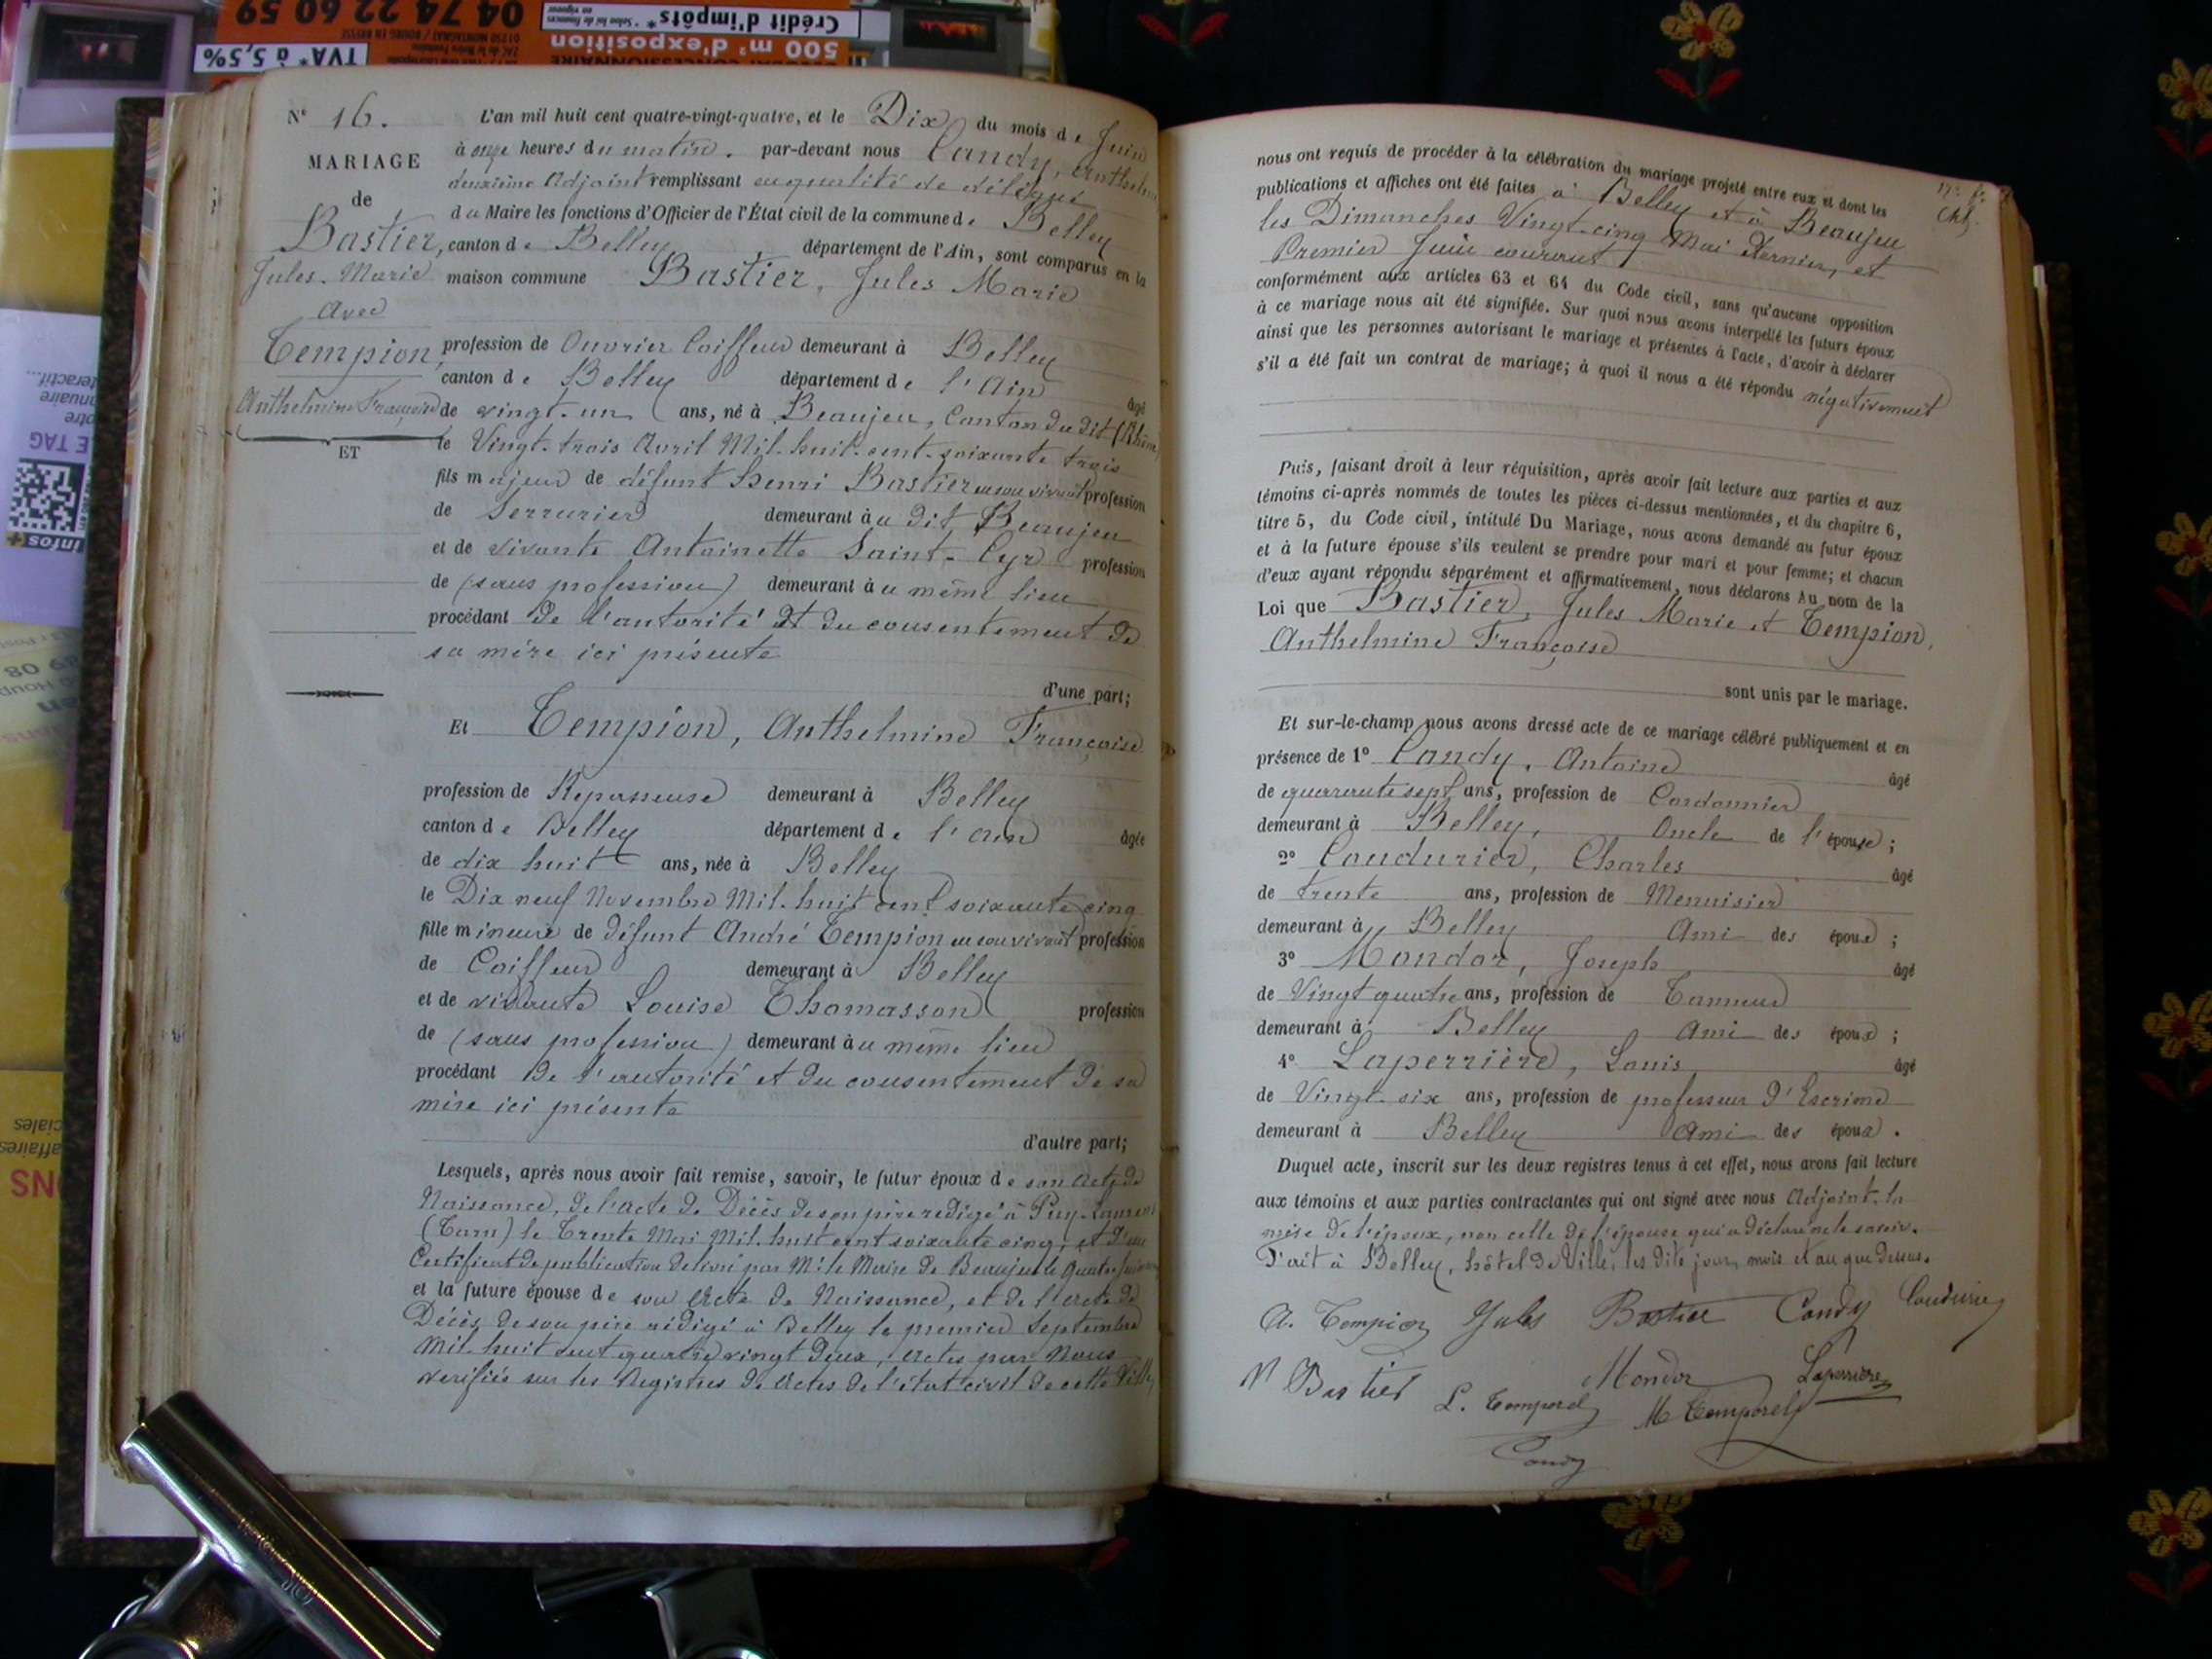 04 74 22 60 59
Crédit d'impôts*
TVA* à 5,5%
500 m² d'exposition
N° 16.
MARIAGE
de
Bastier,
Jules-Marie
Avec
Tempion,
Anthelmine Françoise
ET
L'an mil huit cent quatre-vingt-quatre, et le Dix du mois de Juin
à onze heures du matin. par-devant nous Candy, Anthelme
deuxième Adjoint remplissant en qualité de délégué
du Maire les fonctions d'Officier de l'État civil de la commune de Belley
canton de Belley département de l'Ain, sont comparus en la
maison commune Bastier, Jules Marie
profession de Ouvrier Coiffeur demeurant à Belley
canton de Belley département de l'Ain âgé
de vingt-un ans, né à Beaujeu, Canton du dit (Rhône)
le Vingt-trois Avril Mil-huit-cent-soixante trois
fils majeur de défunt Henri Bastier en son vivant profession
de Serrurier demeurant au dit Beaujeu
et de vivante Antoinette Saint-Cyr profession
de (sans profession) demeurant au même lieu
procédant de l'autorité et du consentement de
sa mère ici présente
d'une part;
Et Tempion, Anthelmine Françoise
profession de Repasseuse demeurant à Belley
canton de Belley département de l'Ain âgée
de dix huit ans, née à Belley
le Dix neuf Novembre Mil-huit cent soixante cinq
fille mineure de défunt André Tempion en son vivant profession
de Coiffeur demeurant à Belley
et de vivante Louise Thomasson profession
de (sans profession) demeurant au même lieu
procédant de l'autorité et du consentement de sa
mère ici présente
d'autre part;
Lesquels, après nous avoir fait remise, savoir, le futur époux de son acte de
Naissance, de l'acte de Décès de son père rédigé à Puy-Laurens
(Tarn) le Trente Mai Mil-huit cent soixante cinq, et d'un
Certificat de publication délivré par Mr le Maire de Beaujeu le quatre
et la future épouse de son acte de Naissance, et de l'acte de
Décès de son père rédigé à Belley le premier Septembre
Mil-huit cent quatre vingt deux, actes par Nous
vérifiés sur les Registres de actes de l'état civil de cette Ville
nous ont requis de procéder à la célébration du mariage projeté entre eux et dont les
publications et affiches ont été faites à Belley et à Beaujeu
les Dimanches Vingt-cinq Mai dernier, et
Premier Juin courant
conformément aux articles 63 et 64 du Code civil, sans qu'aucune opposition
à ce mariage nous ait été signifiée. Sur quoi nous avons interpellé les futurs époux
ainsi que les personnes autorisant le mariage et présentes à l'acte, d'avoir à déclarer
s'il a été fait un contrat de mariage; à quoi il nous a été répondu négativement
Puis, faisant droit à leur réquisition, après avoir fait lecture aux parties et aux
témoins ci-après nommés de toutes les pièces ci-dessus mentionnées, et du chapitre 6,
titre 5, du Code civil, intitulé Du Mariage, nous avons demandé au futur époux
et à la future épouse s'ils veulent se prendre pour mari et pour femme; et chacun
d'eux ayant répondu séparément et affirmativement, nous déclarons Au nom de la
Loi que Bastier, Jules Marie et Tempion,
Anthelmine Françoise
sont unis par le mariage.
Et sur-le-champ nous avons dressé acte de ce mariage célébré publiquement et en
présence de 1° Candy, Antoine âgé
de quarante sept ans, profession de Cordonnier
demeurant à Belley, Oncle de l'épouse;
2° Coudurier, Charles âgé
de trente ans, profession de Menuisier
demeurant à Belley Ami des époux;
3° Mondor, Joseph âgé
de Vingt quatre ans, profession de Tanneur
demeurant à Belley Ami des époux;
4° Laperrière, Louis âgé
de Vingt-six ans, profession de professeur d'Escrime
demeurant à Belley Ami des époux.
Duquel acte, inscrit sur les deux registres tenus à cet effet, nous avons fait lecture
aux témoins et aux parties contractantes qui ont signé avec nous Adjoint. la
mère de l'époux, non celle de l'épouse qui a déclaré ne le savoir.
Fait à Belley, hôtel de Ville, les dits jour, mois et an que dessus.
A. Tempion Jules Bastier Candy Coudurier
Bastier L. Temporel Mondor M Temporel Laperrière
Candy